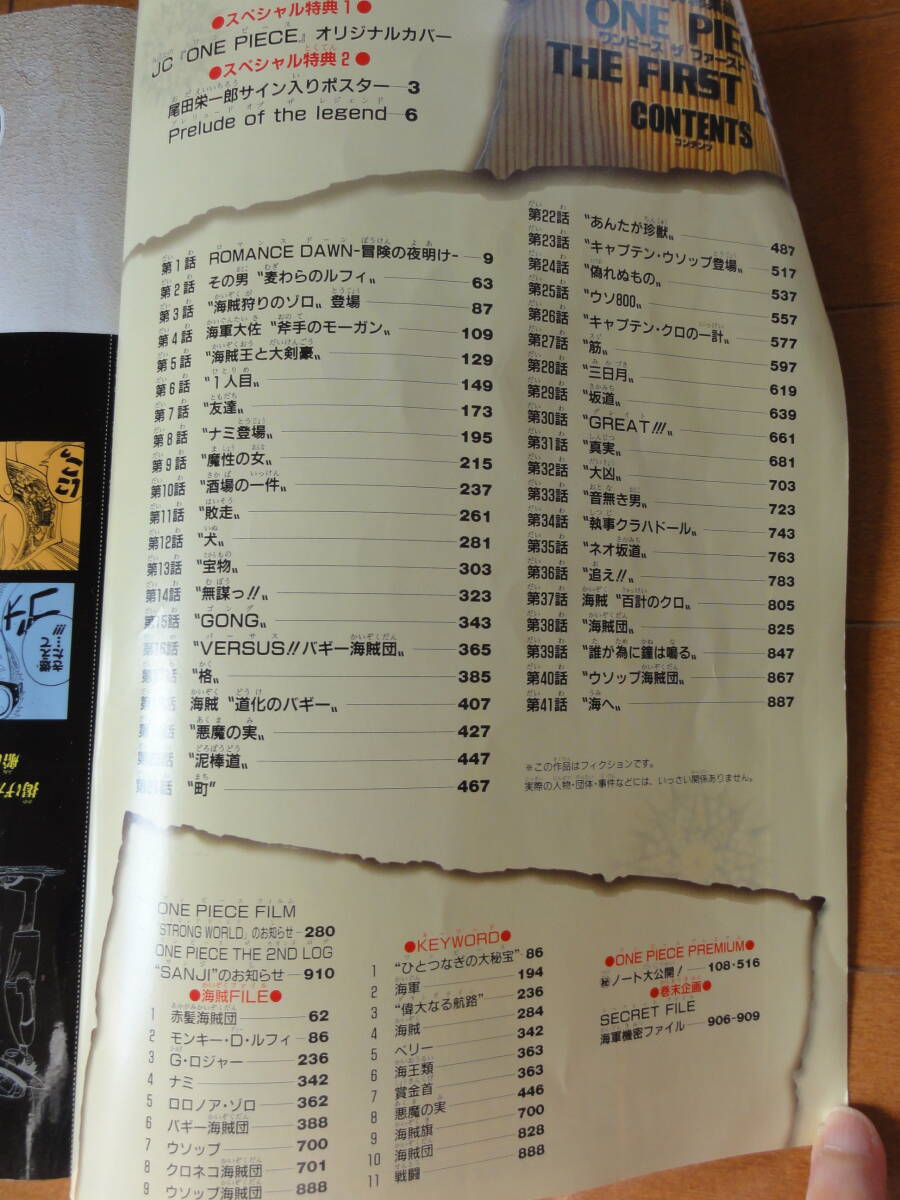 ●スペシャル特典1●
JC『ONE PIECE』オリジナルカバー
●スペシャル特典2●
尾田栄一郎サイン入りポスター 3
Prelude of the legend 6
ONE PIE
ワンピース ザ ファースト
THE FIRST
CONTENTS
コンテンツ
第1話 ROMANCE DAWN-冒険の夜明け- 9
第2話 その男〝麦わらのルフィ〟 63
第3話 〝海賊狩りのゾロ〟登場 87
第4話 海軍大佐〝斧手のモーガン〟 109
第5話 〝海賊王と大剣豪〟 129
第6話 〝1人目〟 149
第7話 〝友達〟 173
第8話 〝ナミ登場〟 195
第9話 〝魔性の女〟 215
第10話 〝酒場の一件〟 237
第11話 〝敗走〟 261
第12話 〝犬〟 281
第13話 〝宝物〟 303
第14話 〝無謀っ!!〟 323
第15話 〝GONG〟 343
第16話 〝VERSUS!!バギー海賊団〟 365
〝格〟 385
海賊〝道化のバギー〟 407
〝悪魔の実〟 427
〝泥棒道〟 447
〝町〟 467
第22話 〝あんたが珍獣〟 487
第23話 〝キャプテン・ウソップ登場〟 517
第24話 〝偽れぬもの〟 537
第25話 〝ウソ800〟 557
第26話 〝キャプテン・クロの一計〟 577
第27話 〝筋〟 597
第28話 〝三日月〟 619
第29話 〝坂道〟 639
第30話 〝GREAT!!!〟 661
第31話 〝真実〟 681
第32話 〝大凶〟 703
第33話 〝音無き男〟 723
第34話 〝執事クラハドール〟 743
第35話 〝ネオ坂道〟 763
第36話 〝追え!!〟 783
第37話 海賊〝百計のクロ〟 805
第38話 〝海賊団〟 825
第39話 〝誰が為に鐘は鳴る〟 847
第40話 〝ウソップ海賊団〟 867
第41話 〝海へ〟 887
※この作品はフィクションです。
実際の人物・団体・事件などには、いっさい関係ありません。
ONE PIECE FILM
STRONG WORLD』のお知らせ 280
ONE PIECE THE 2ND LOG
“SANJI”のお知らせ 910
●海賊FILE●
1 赤髪海賊団 62
2 モンキー・D・ルフィ 86
3 G・ロジャー 236
4 ナミ 342
5 ロロノア・ゾロ 362
6 バギー海賊団 388
7 ウソップ 700
8 クロネコ海賊団 701
9 ウソップ海賊団 888
●KEYWORD●
1 “ひとつなぎの大秘宝” 86
2 海軍 194
3 “偉大なる航路” 236
4 海賊 284
5 ベリー 342
6 海王類 363
7 賞金首 363
8 悪魔の実 446
9 海賊旗 700
10 海賊団 828
11 戦闘 888
●ONE PIECE PREMIUM●
㊙ノート大公開! 108・516
●巻末企画●
SECRET FILE
海軍機密ファイル 906-909